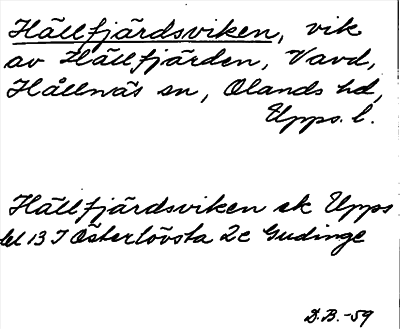 Hällfjärdsviken, vik
av Hällfjärden, Vavd,
Hållnäs sn, Olands hd,
Upps. l.
Hällfjärdsviken ek Upps
bl 13 I Österlövsta 2c Gudinge
D.B.-59